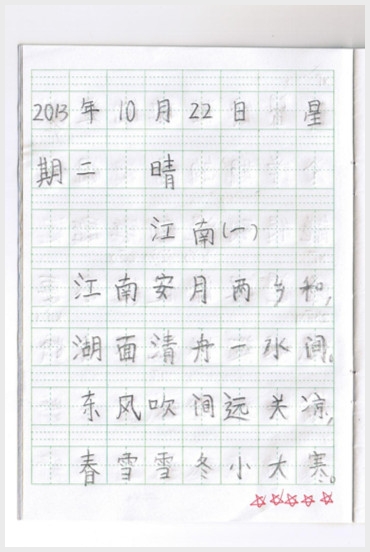 2013年10月22日 星
期二 晴
江南(一)
江南安月两乡和,
湖面清舟一水间。
东风吹间远关凉,
春雪雪冬小大寒。